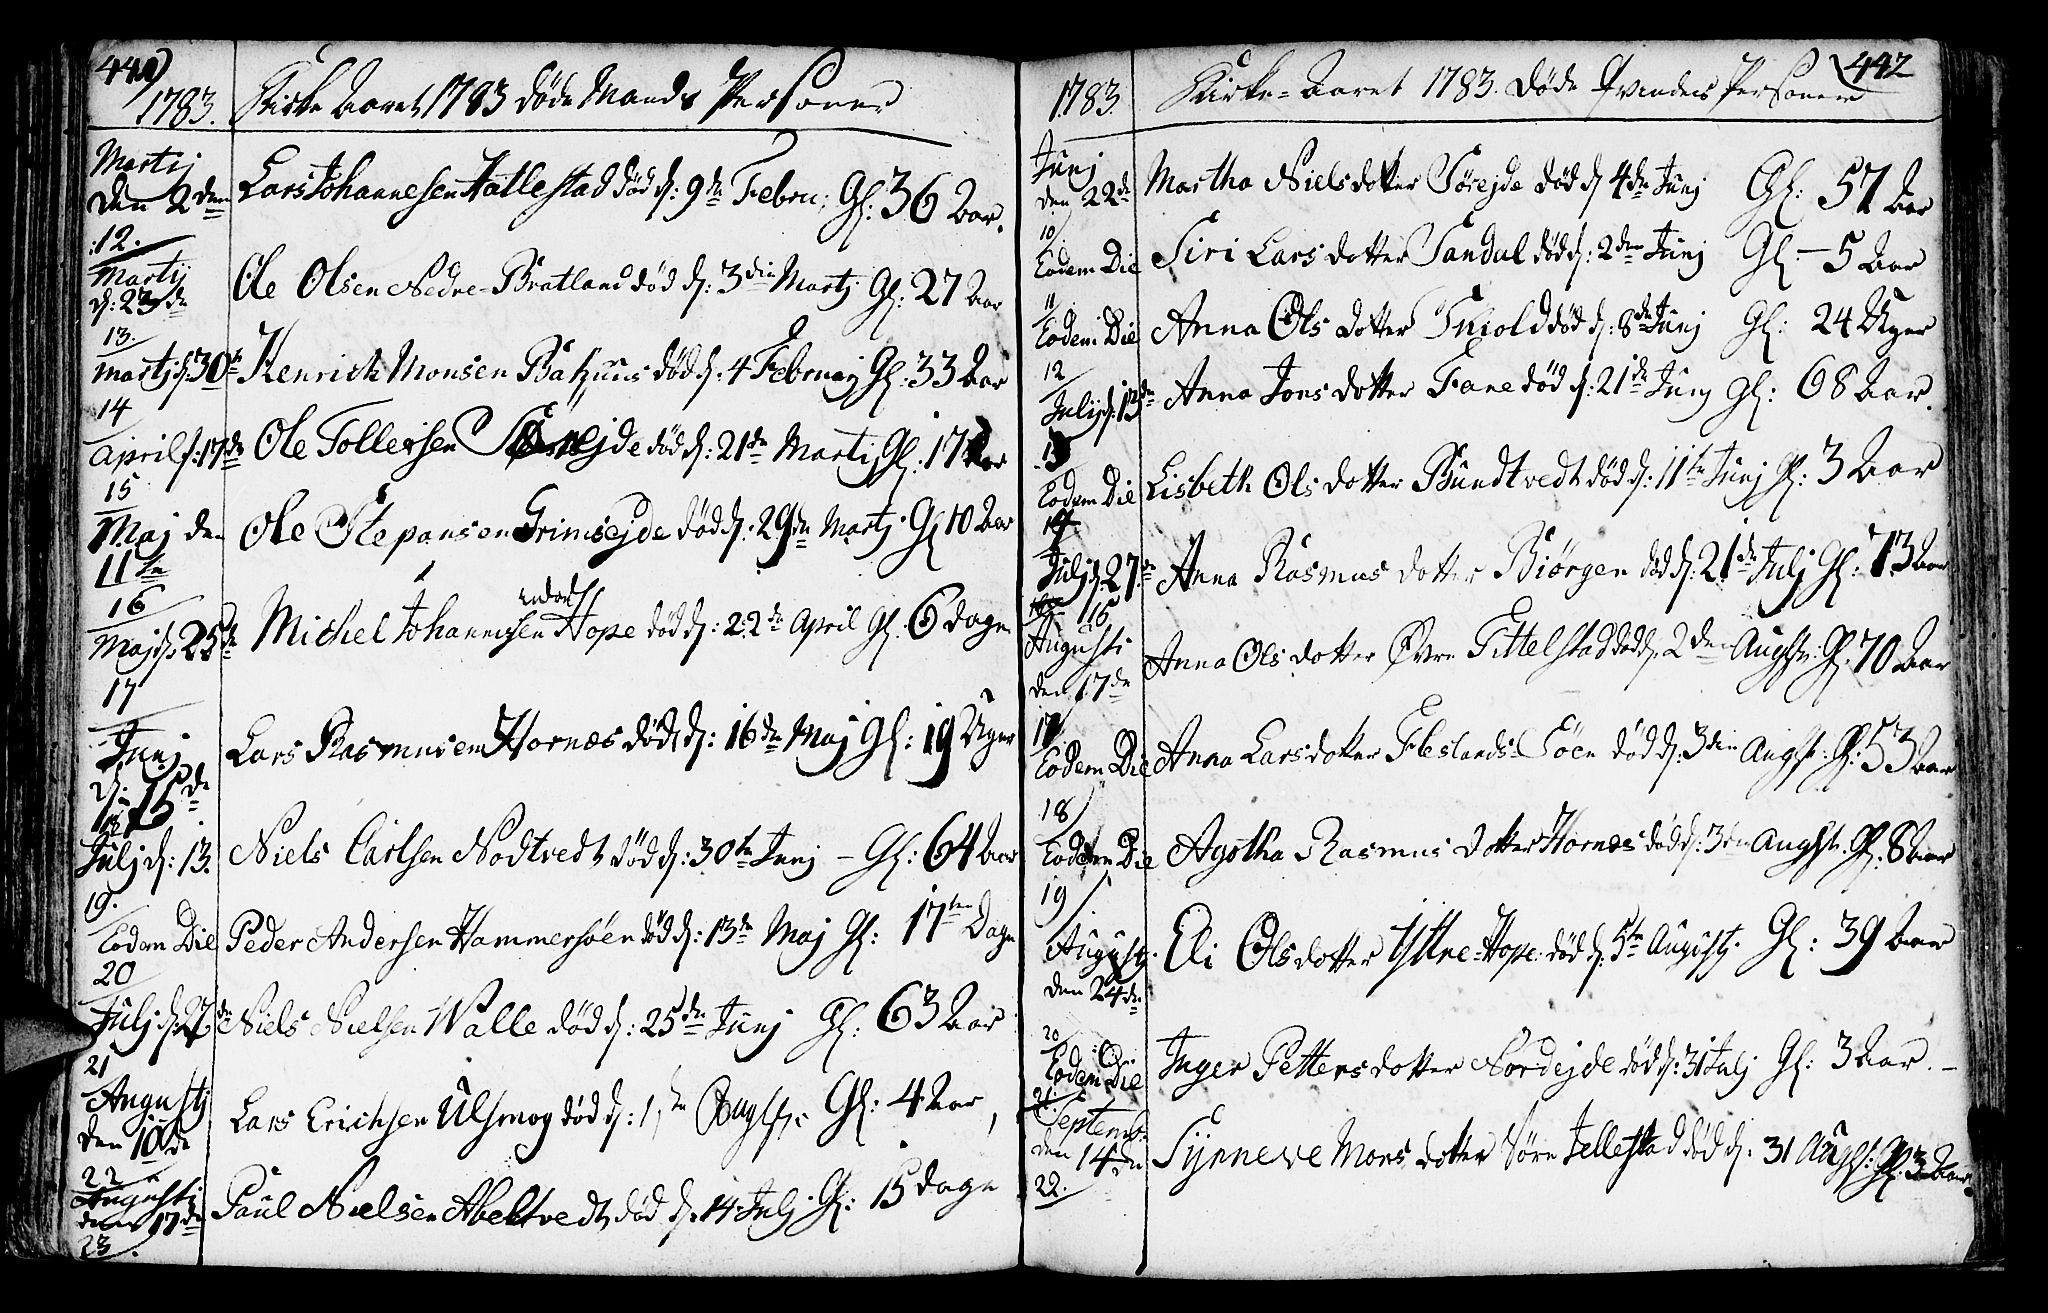 1783. Kirke Aaret 1783 døde Mands Personer
Martij
den 2den Lars Johannesen Hallestad død d: 9de Febru: Gl: 36 Aar.
12.
Martij
d: 23de Ole Olsen Nedre-Bratland død d: 3die Martj Gl: 27 Aar
13.
Martij d: 30te Henrich Monsen død d: 4 Februarij Gl: 33 Aar
14
April d: 17de Ole Tollevsen død d: 21de Martij Gl: 17 Aar
15
Maj den
11te Ole Stepansen Grimsejde død d: 29de Martj Gl 10 Aar
16
Maj d: 25de Michel Johannesen Hope død d: 22de April Gl. 6 dage
17
Junj
d: 15de Lars Rasmusen Hornæs død d: 16de Maj Gl: 19 Uger
Julj d: 13. Niels Carlsen Nodtvedt død d: 30te Junj - Gl: 64 Aar
19.
Eodem Die Peder Andersen Hammersøen død d: 13de Maj Gl: 17ten Dage
20
Julj d: 27de Niels Nielsen Walle død d: 25de Junj Gl: 63 Aar
21
Augustj
den 10de Lars Erichsen Ulsmog død d: 1ste Augst: Gl: 4 Aar
22
Augusti
den 17de Paul Nielsen Abeltvedt død d. 14 Julj Gl: 15 dage
23.
442
1783. Kirke-Aaret 1783. Døde Qvindes Personer
Junj
den 22de Martha Nielsdotter Sørejde død d 4de Junj Gl: 57 Aar
10
Eodem Die Siri Lars dotter Sandal død d: 2den Junj Gl - 5 Aar
11
Eodem Die Anna Ols dotter Skiold død d: 8de Junj Gl: 24 Uger
12
Julij d: 13de Anna Jons dotter Fane død d: 21de Junj Gl: 68 Aar.
13
Eodem Die Lisbeth Ols dotter Bundtvedt død d: 11te Junj Gl: 3 Aar
14
Julj d: 27de Anna Rasmus dotter Biørgen død d: 21de Julj Gl: 73 Aar
16
Augusti
den 17de Anna Ols dotter Øvre Tittelstad død d. 2den Augst: Gl: 70 Aar
17
Eodem Die Anna Larsdotter Fleslands-Søen død d: 3die Augst: Gl: 53 Aar
18
Eodem Die Agotha Rasmus dotter Hornæs død d: 3die Augst. Gl: 8 Aar
19
Augustj.
den 24de Eli Olsdotter Yttre-Hope død d: 5te Augustj Gl: 39 Aar
20
Eodem Die Inger Pettersdotter Nordejde død d: 31 Julj Gl: 3 Aar. -
21.
Septemb:
den 14de Synneve Mons dotter Søre Jellestad død d: 31 Augst: Gl: 3 Aar.
22.